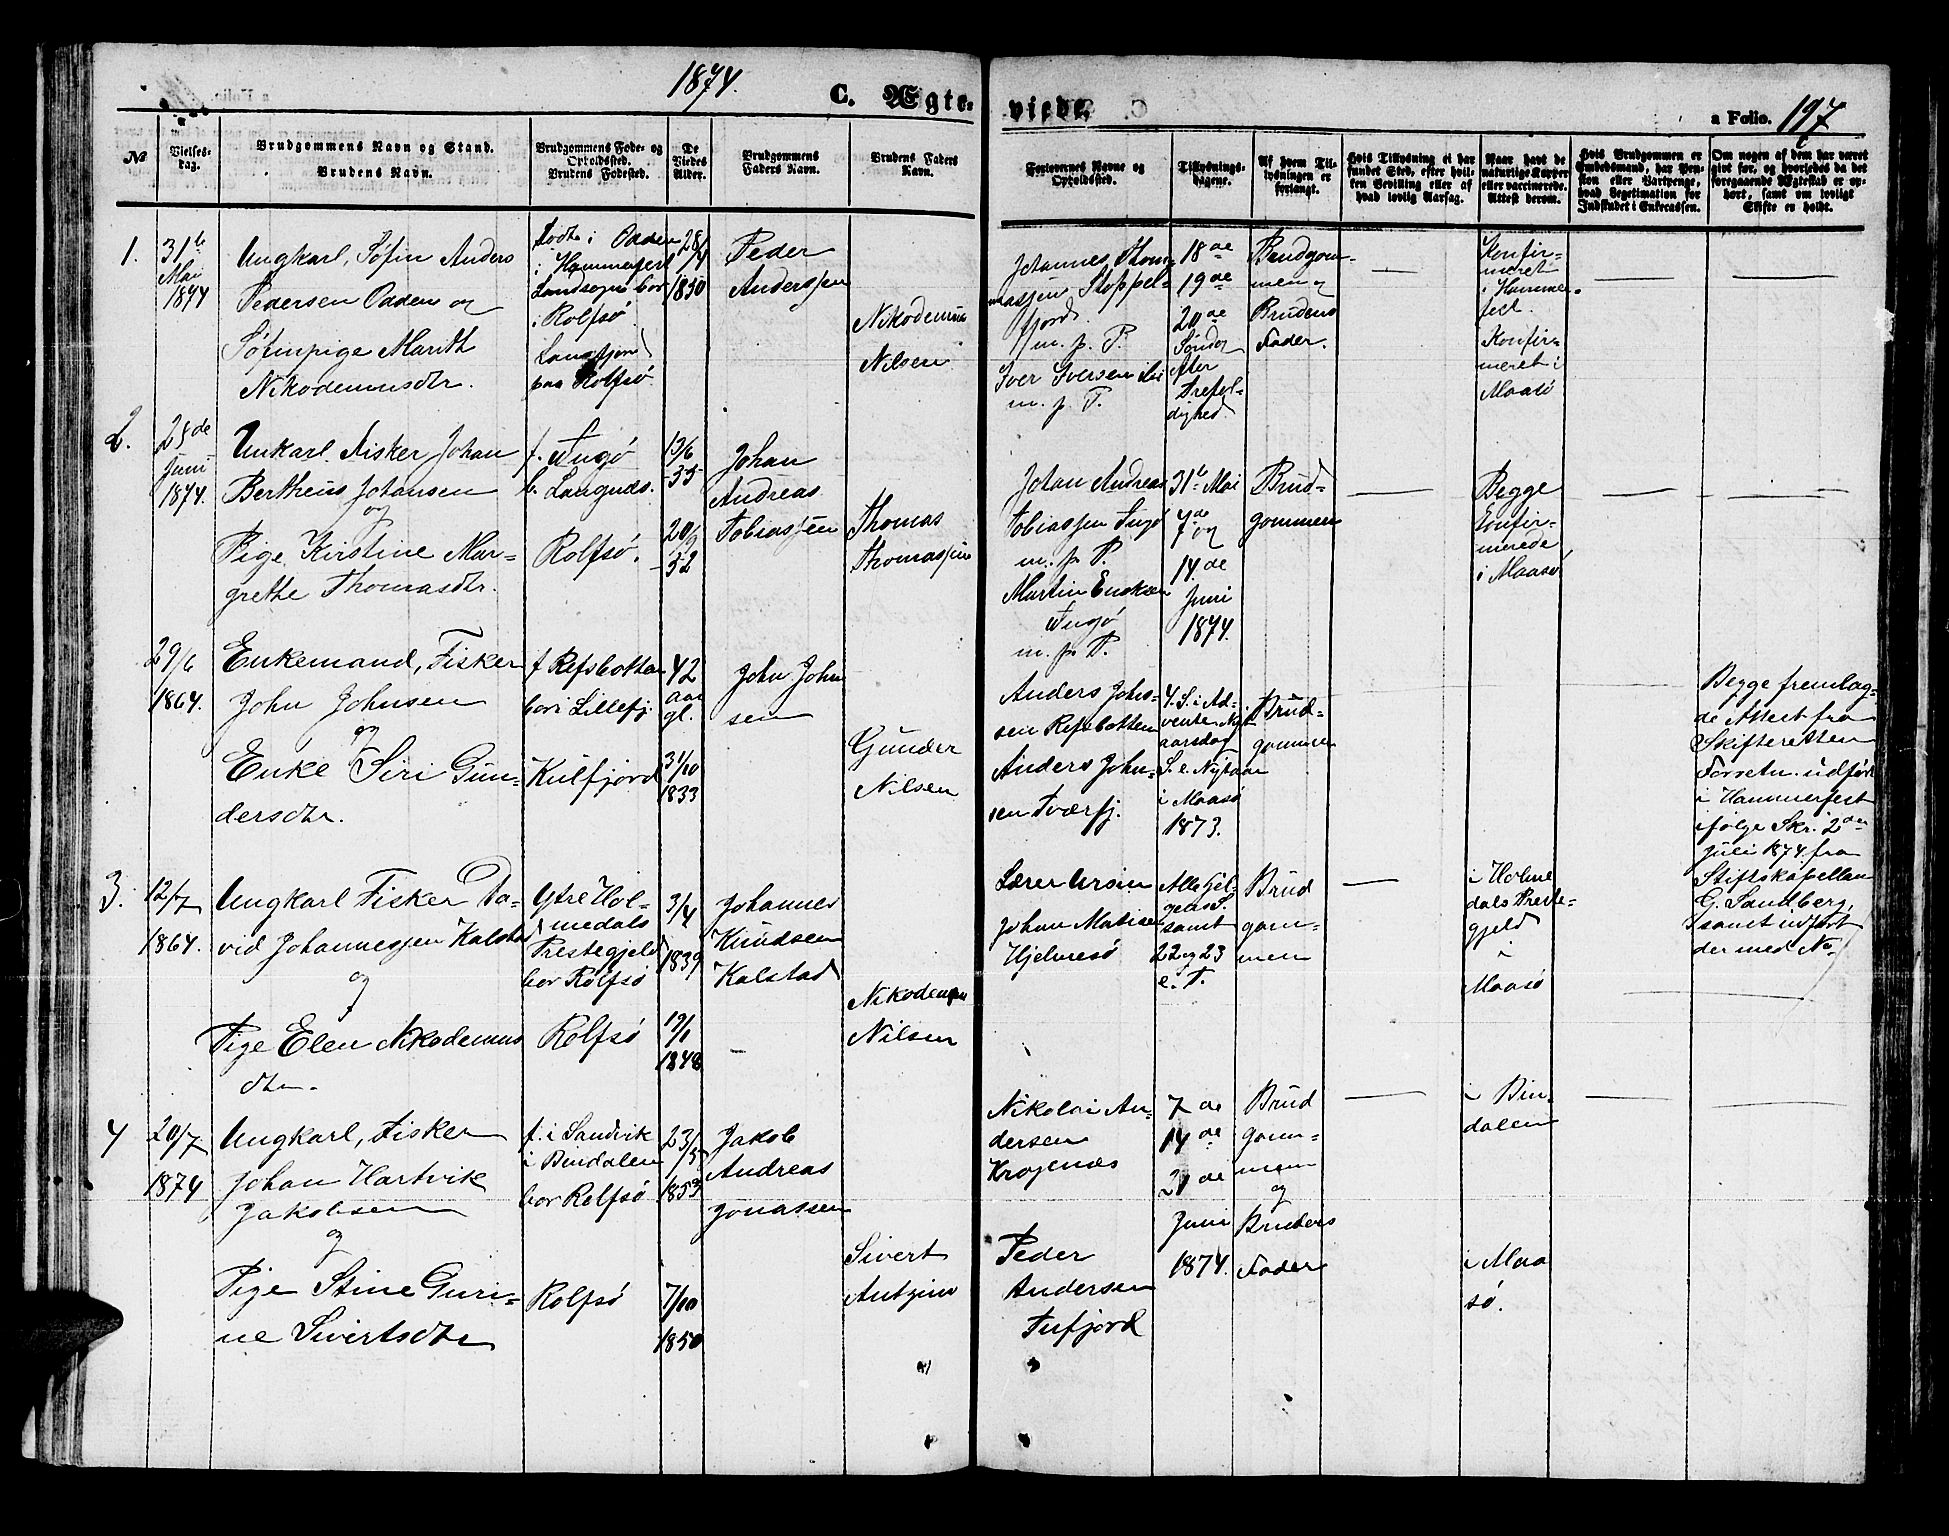 1874.
C. Ægte-
viede.
a Folio. 197
No
Vielses-
dag.
Brudgommens Navn og Stand.
Brudens Navn.
Brudgommens Føde- og
Opholdssted.
Brudens Fødested.
De
Viedes
Alder.
Brudgommens
Faders Navn.
Brudens Faders
Navn.
Forlovernes Navne og
Opholdssted.
Tillysnings-
dagene.
Af hvem Til-
lysningen er
forlangt.
Hvis Tillysning ei har
fundet Sted, efter hvil-
ken Bevilling eller af
hvad lovlig Aarsag.
Naar havt de
naturlige Kopper
eller vaccinerede.
Attest derom.
Hvis Brudgommen er
Embedsmand, har Pen-
sion eller Vartpenge,
hvad Legitimation for
Indskudet i Enkecassen.
Om nogen af dem har været
gift før, og hvorledes da det
foregaaende Ægteskab er op-
hørt, samt om lovligt
Skifte er holdt.
1.
31te
Mai
1874
Ungkarl, Søfin Anders
Pedersen Odden og
Søfinpige Marith
Nikodemusdtr.
Født i Odden
i Hammerfest
Landsogn bor
i Rolfsø
Langfjord
paa Rolfsø
28/4
1850
Peder
Anderssen
Nikodemus
Nilsen
Johannes Thom-
massen Stoppel-
fjord
m. p. P.
Iver Iversen
m. p. P.
18de
19de
20de
Søndag
efter
Trefol-
dighed
Brudgom-
men og
Brudens
Fader.
Konfir-
meret
i Hammer-
fest.
Konfir-
meret i
Maasø
2.
28de
Juni
1874.
Unkarl. Fisker Johan
Bertheus Johansen
og
Pige Kirstine Mar-
grethe Thomasdtr.
f. Ingø
b. Langnds.
Rolfsø.
13/6
-35
20/9
-52
Johan
Andreas
Tobiassen
Thomas
Thomassen
Johan Andreas
Tobiassen Ingø
m. p. P.
Martin Enoksen
Ingø
m. p. P.
31te Mai
7de og
14de
Juni
1874.
Brud-
gommen
Begge
konfir-
merede
i Maasø
29/6
1864.
Enkemand, Fisker
John Johnsen
og
Enke Siri Gun-
dersdtr.
f Refsbotten
bor i Lillefj.
Kulfjord
42
aar
gl.
31/10
1833
John John
sen
Gunder
Nilsen
Anders John-
sen Refsbotten
Anders John-
sen Tværfj.
4. S. i Ad-
vente Nyt
aarsdag
S. e. Nytaar
i Maasø
1873.
Brud-
gommen
Begge fremlag-
de Attest fra
Skifteretten
Forretn. udført
i Hammerfest
ifølge Skr. 2den
Juli 1874 fra
Stiftskapellan
G. Sandberg,
samt udført
der med No
3.
12/7
1864.
Ungkarl Fisker Da-
vid Johannessen Kalstad
og
Pige Elen Nikodemus
dtr.
Ytre Hol-
medals
Prestegjeld
bor Rolfsø
Rolfsø
3/4
1839
19/1
1848
Johannes
Knudsen
Kalstad
Nikodemus
Nilsen
Lærer Ursin
Johan Matisen
Hjelmesø
Alle Hel-
gens S.
samt
22 og 23
e. T.
Brud
gom-
men
i Holme
dals Preste-
gjeld
i
Maasø
4
20/7
1874
Ungkarl, Fisker
Johan Hartvik
Jakobsen
og
Pige Stine Guri-
ne Sivertsdtr
f. i Sandvik
i Bindalen
bor Rolfsø
Rolfsø
23/5
1853
7/10
1850
Jakob
Andreas
Jonassen
Sivert
Nikolai An-
dersen
Krogenæs
Peder
Andersen
Tufjord
7de
14de
21de
Juni
1874.
Brud
gom-
men
og
Brudens
Fader
i Bin
dalen
i Maa
sø.